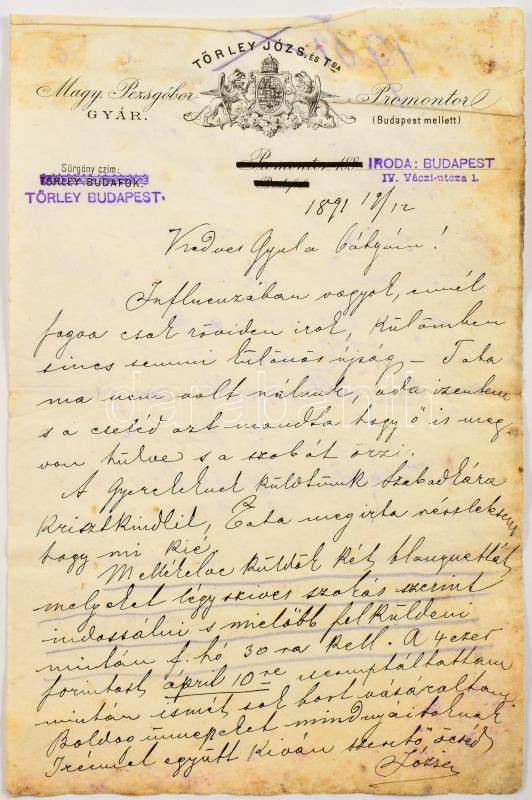 TÖRLEY JÓZS. ÉS TSA
Magy. Pezsgőbor Promontor
GYÁR. (Budapest mellett)
Sürgöny czim: IRODA: BUDAPEST
TÖRLEY BUDAFOK. IV. Váczi-utcza 1.
TÖRLEY BUDAPEST.
1891 19/12
Kedves Gyula bátyám!
Influenzában vagyok, ennél
fogva csak röviden irok, külömben
sincs semmi különös újság – Tata
ma nem volt nálunk, oda izentem
s a cseléd azt mondta hogy ő is meg-
van hülve s a szobát őrzi.
A gyereknek küldtünk Szabadkára
Krisztkindlit, Tata megirta részletesen
hogy mi
Mellékelve küldök két blanquettát
melyeket légy szives szokás szerint
indossálni s mielőbb felküldeni
miután f. hó 30-ra kell. A 4 ezer
forintost április 10-re escomptáltattam
miután ismét sok bort vásároltam.
Boldog ünnepeket mindnyáitoknak
Irénnel együtt kiván szerető öcséd
Józsi
darabanth